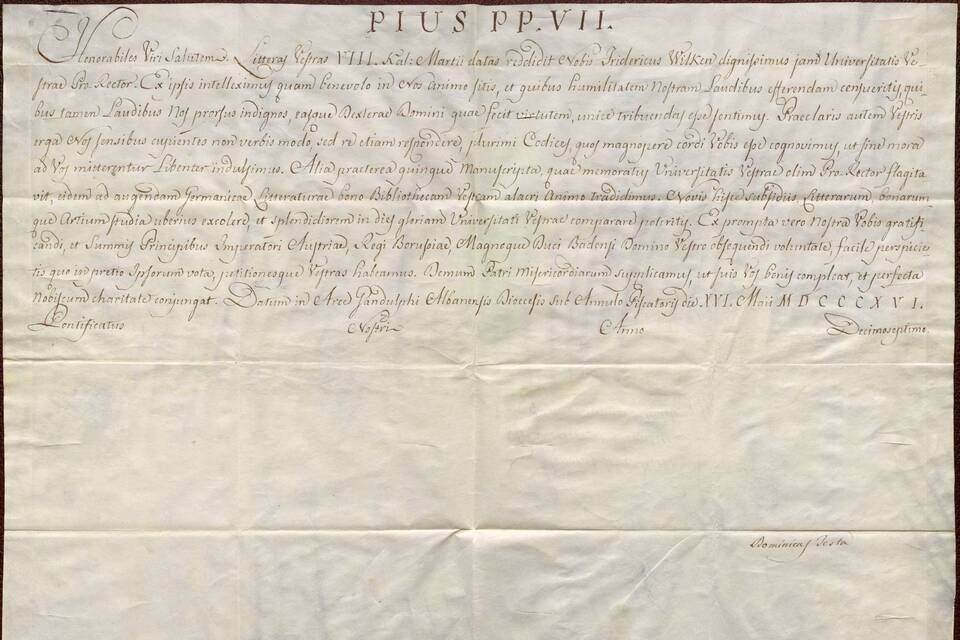 PIUS PP. VII.
Venerabiles Viri Salutem. Litteras Vestras VIII. Kal: Martii datas reddidit Nobis Fridericus Wilken dignissimus jam Universitatis Ve-
strae Pro-Rector. Ex ipsis intelleximus quam benevolo in Nos Animo sitis, et quibus humilitatem Nostram Laudibus efferendam censueritis, qui-
bus tamen Laudibus Nos prorsus indignos, easque Dexterae Domini quae fecit virtutem, unice tribuendas esse sentimus. Praeclaris autem Vestris
erga Nos sensibus cupientes non verbis modo, sed re etiam respondere, plurimi Codices, quos magnopere cordi Vobis esse cognovimus, ut sine mora
ad Vos mitterentur Libenter indulsimus. Alia praeterea quinque Manuscripta, quae memoratus Universitatis Vestrae olim Pro-Rector flagita-
vit, eidem ad augendam Germanicae Litteraturae bono Bibliothecam Vestram alacri Animo tradidimus. Novis hisce subsidiis, Litterarum, bonarum-
que Artium studia uberius excolere, et splendidiorem in dies gloriam Universitati Vestrae comparare poteritis. Ex prompta vero Nostra Vobis gratifi-
candi, et Summis Principibus Imperatori Austriae, Regi Borussiae, Magnoque Duci Badensi Domino Vestro obsequendi voluntate, facile perspicie-
tis quo in pretio Ipsorum vota, petitionesque Vestras habeamus. Demum Patri Misericordiarum supplicamus, ut suis Vos bonis compleat, et perfecta
Nobiscum charitate conjungat. Datum in Arce Gandulphi Albanensis Dioecesis Sub Annulo Piscatoris die XVI. Maii MDCCCXVI.
Pontificatus Nostri Anno Decimoseptimo.
Dominicus Testa